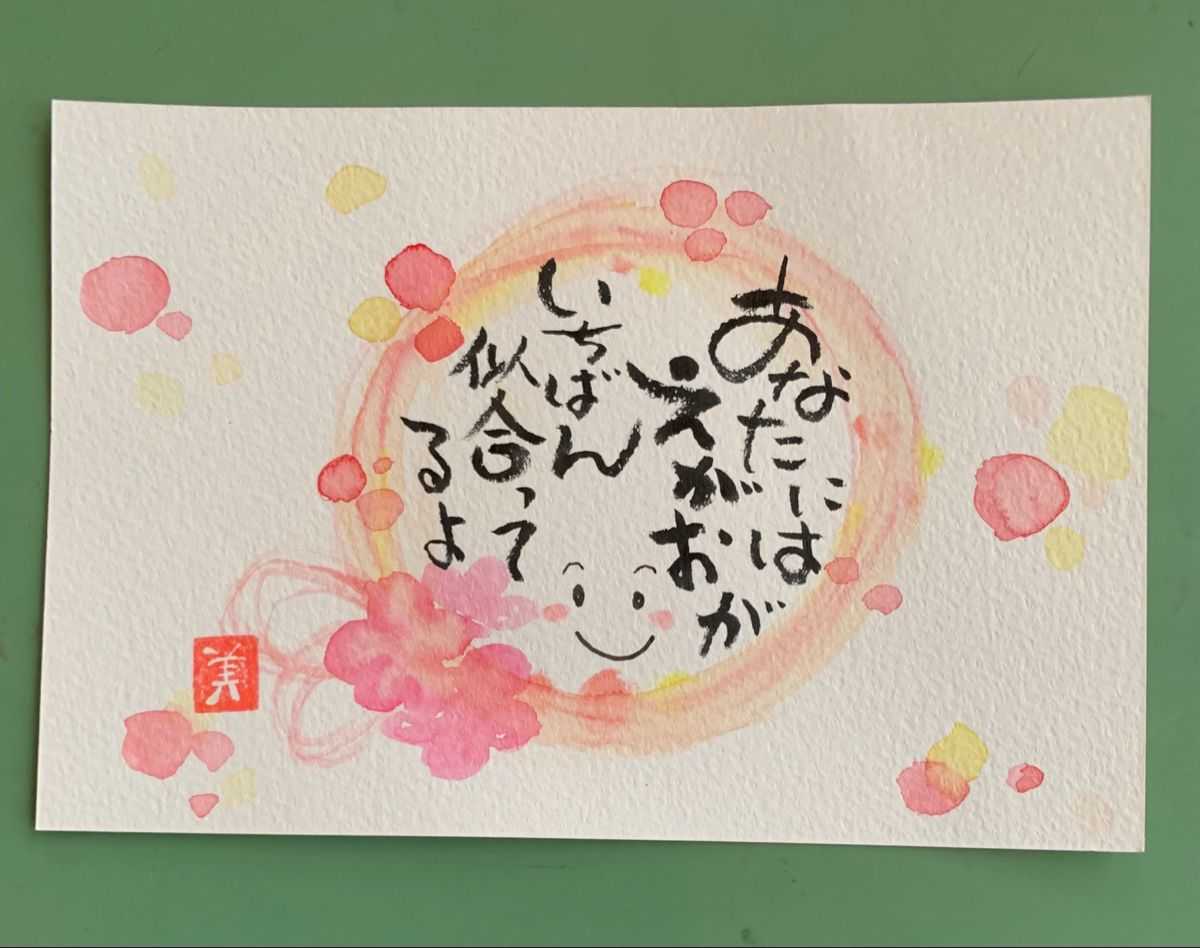 あなたには
えがおが
いちばん
似合って
るよ
美